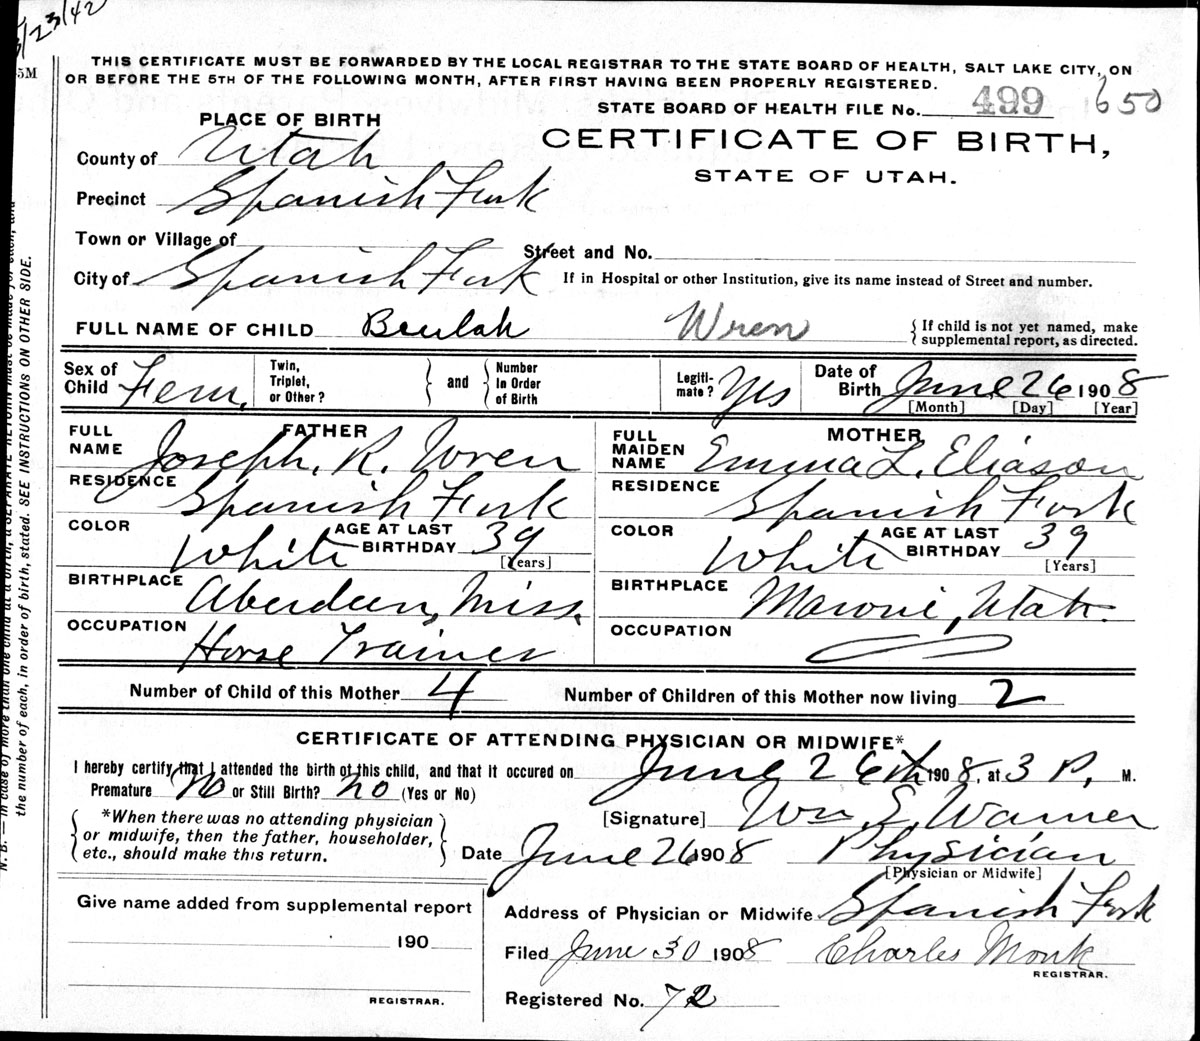 5/23/42
5M
THIS CERTIFICATE MUST BE FORWARDED BY THE LOCAL REGISTRAR TO THE STATE BOARD OF HEALTH, SALT LAKE CITY, ON
OR BEFORE THE 5TH OF THE FOLLOWING MONTH, AFTER FIRST HAVING BEEN PROPERLY REGISTERED.
STATE BOARD OF HEALTH FILE No. 499 650
PLACE OF BIRTH
CERTIFICATE OF BIRTH,
STATE OF UTAH.
County of Utah
Precinct Spanish Fork
Town or Village of
Street and No.
City of Spanish Fork
If in Hospital or other Institution, give its name instead of Street and number.
FULL NAME OF CHILD Beulah Wren
If child is not yet named, make
supplemental report, as directed.
Sex of
Child Fem.
Twin,
Triplet,
or Other?
and
Number
In Order
of Birth
Legiti-
mate? Yes
Date of
Birth June 26 1908
[Month] [Day] [Year]
FATHER
FULL
NAME Joseph. R. Wren
RESIDENCE Spanish Fork
COLOR White
AGE AT LAST
BIRTHDAY 39
[Years]
BIRTHPLACE Aberdeen, Miss.
OCCUPATION Horse Trainer
MOTHER
FULL
MAIDEN
NAME Emma L. Eliason
RESIDENCE Spanish Fork
COLOR White
AGE AT LAST
BIRTHDAY 39
[Years]
BIRTHPLACE Maroni, Utah.
OCCUPATION
Number of Child of this Mother 4
Number of Children of this Mother now living 2
CERTIFICATE OF ATTENDING PHYSICIAN OR MIDWIFE*
I hereby certify that I attended the birth of this child, and that it occured on June 26th 1908, at 3 P. M.
Premature No or Still Birth? no (Yes or No)
*When there was no attending physician
or midwife, then the father, householder,
etc., should make this return.
[Signature] Wm. E. Warner
Date June 26 1908 Physician
[Physician or Midwife]
Give name added from supplemental report
190
REGISTRAR.
Address of Physician or Midwife Spanish Fork
Filed June 30 1908 Charles Monk
REGISTRAR.
Registered No. 72
N. B. — In case of more than one child at a birth, a SEPARATE RETURN must be made for each, and
the number of each, in order of birth, stated. SEE INSTRUCTIONS ON OTHER SIDE.